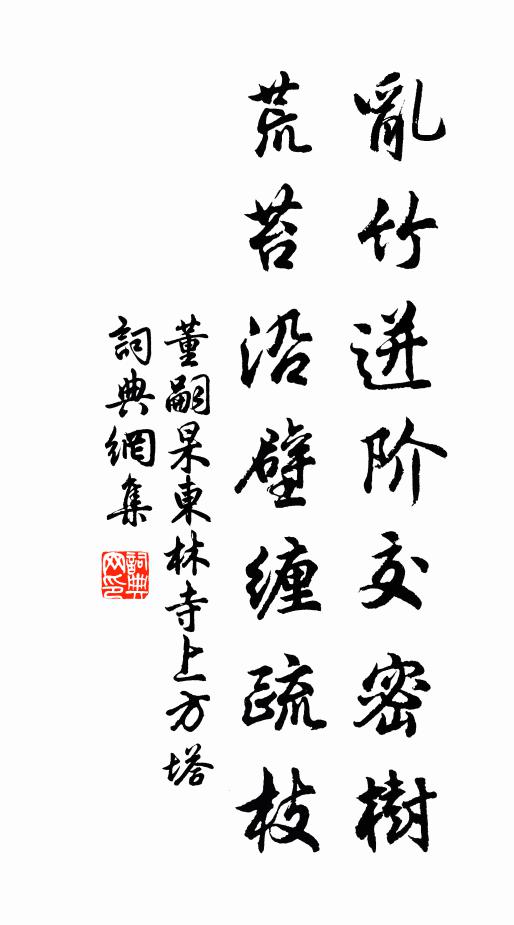 亂竹迸阶交密樹
荒苔沿壁纏疏枝
董嗣杲東林寺上方塔
詞典網集
詞典網印